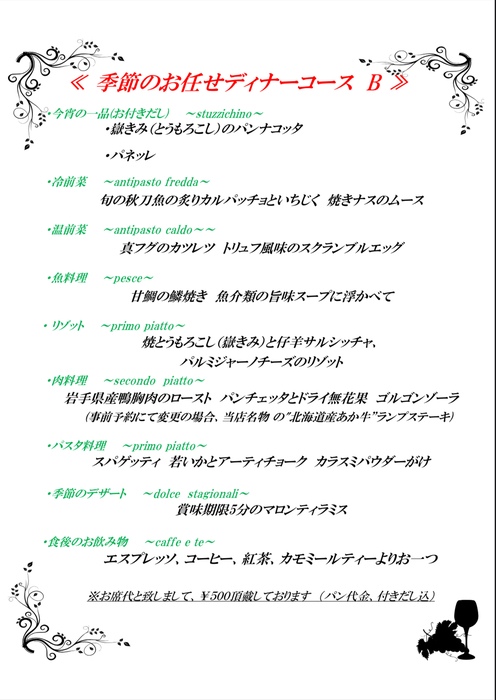 ≪ 季節のお任せディナーコース B ≫
・今宵の一品(お付きだし) ～stuzzichino～
・嶽きみ(とうもろこし)のパンナコッタ
・パネッレ
・冷前菜 ～antipasto fredda～
旬の秋刀魚の炙りカルパッチョといちじく 焼きナスのムース
・温前菜 ～antipasto caldo～～
真フグのカツレツ トリュフ風味のスクランブルエッグ
・魚料理 ～pesce～
甘鯛の鱗焼き 魚介類の旨味スープに浮かべて
・リゾット ～primo piatto～
焼とうもろこし(嶽きみ)と仔羊サルシッチャ、
パルミジャーノチーズのリゾット
・肉料理 ～secondo piatto～
岩手県産鴨胸肉のロースト パンチェッタとドライ無花果 ゴルゴンゾーラ
(事前予約にて変更の場合、当店名物 の"北海道産あか牛"ランプステーキ)
・パスタ料理 ～primo piatto～
スパゲッティ 若いかとアーティチョーク カラスミパウダーがけ
・季節のデザート ～dolce stagionali～
賞味期限5分のマロンティラミス
・食後のお飲み物 ～caffe e te～
エスプレッソ、コーヒー、紅茶、カモミールティーよりお一つ
※お席代と致しまして、￥500頂戴しております (パン代金、付きだし込)